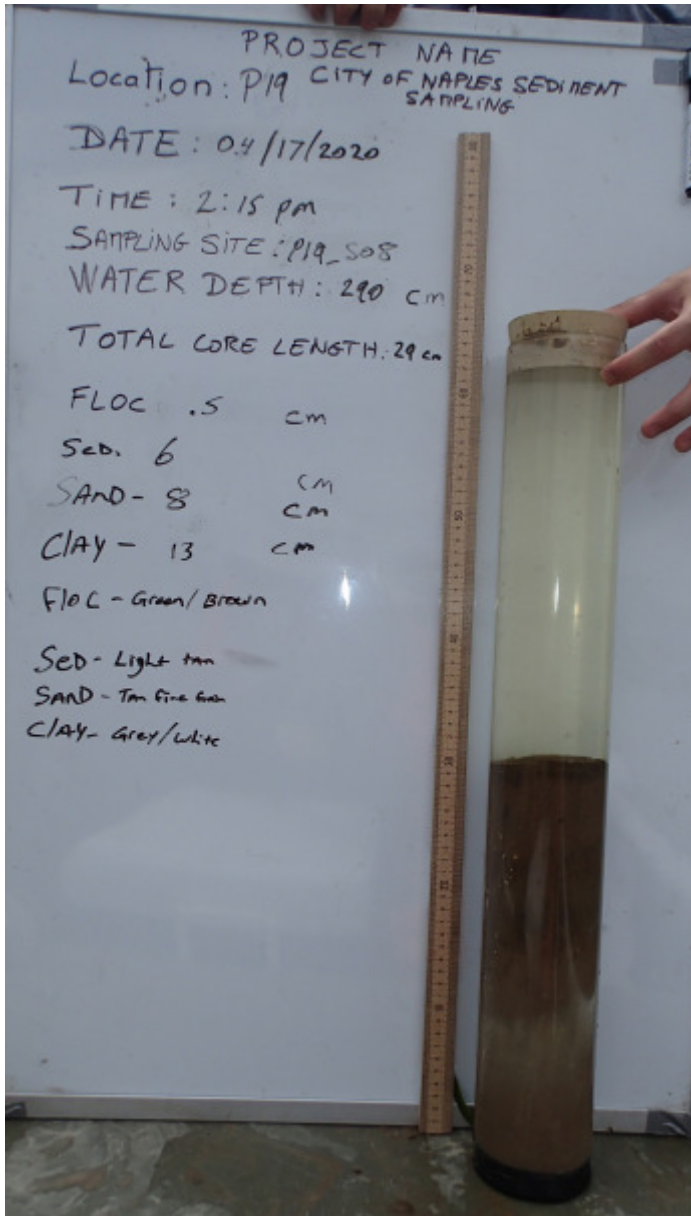 PROJECT NAME
Location: P19 CITY OF NAPLES SEDIMENT
SAMPLING
DATE: 04/17/2020
TIME: 2:15 pm
SAMPLING SITE: P19_S08
WATER DEPTH: 290 cm
TOTAL CORE LENGTH: 29 cm
FLOC .5 cm
SED. 6 cm
SAND - 8 cm
CLAY - 13 cm
FLOC - Green/Brown
SED - Light tan
SAND - Tan fine
CLAY - Grey/White